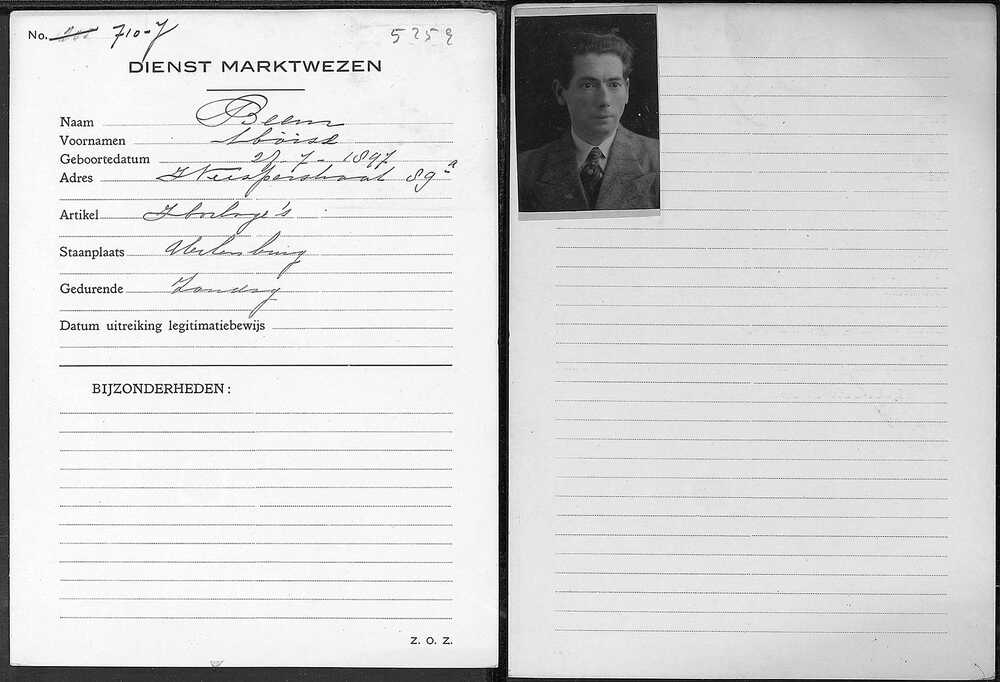 No. 710-7
5259
DIENST MARKTWEZEN
Naam Beem
Voornamen Moïse
Geboortedatum 28-7-1897
Adres Weesperstraat 89a
Artikel Horloge's
Staanplaats Uilenburg
Gedurende Zondag
Datum uitreiking legitimatiebewijs
BIJZONDERHEDEN:
Z. O. Z.